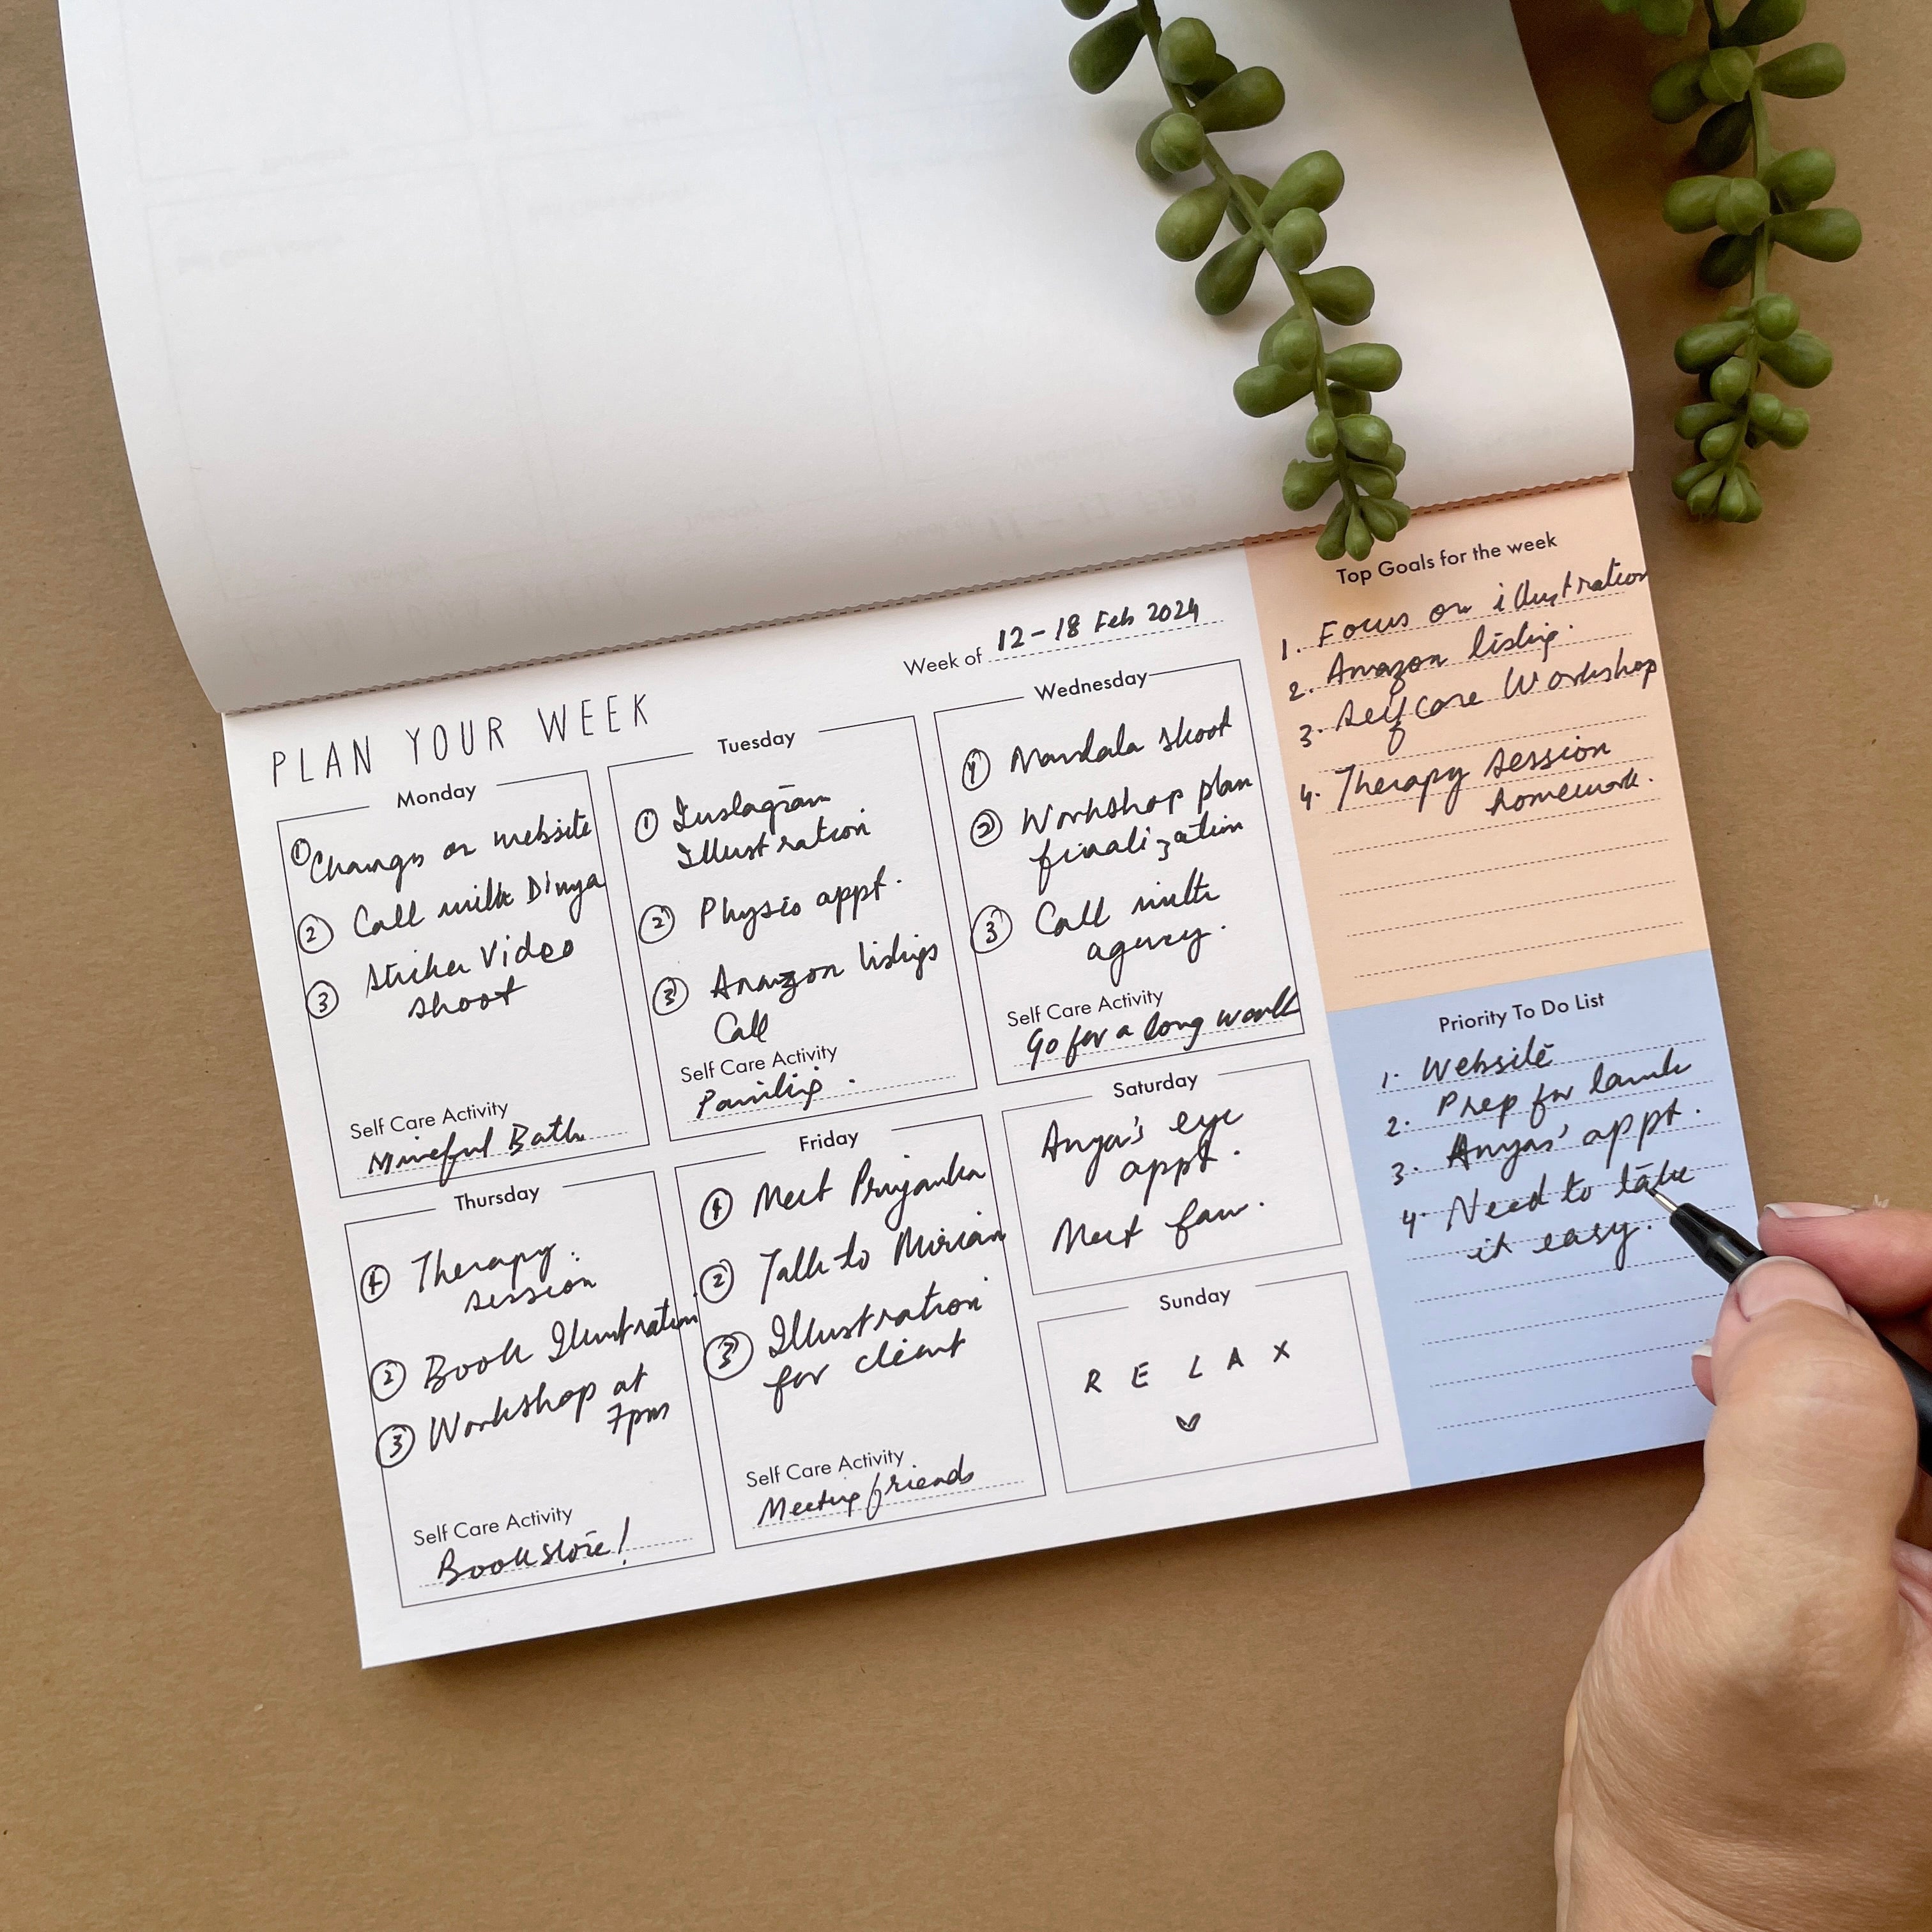 PLAN YOUR WEEK
Week of 12 - 18 Feb 2024
Monday
① Changes on website
② Call with Divya
③ Sticker Video
shoot
Self Care Activity
Bath
Tuesday
① Instagram
Illustration
② Physio appt.
③ Amazon listings
Call
Self Care Activity
Painting.
Wednesday
① Mandala shoot
② Workshop plan
finalization
③ Call with
agency.
Self Care Activity
Go for a long walk
Thursday
① Therapy
session
② Book Illustration
③ Workshop at
7pm
Self Care Activity
Bookstore!
Friday
① Meet Priyanka
② Talk to Miriam
③ Illustration
for client
Self Care Activity
Meeting friends
Saturday
Anya's eye
appt.
Meet
Sunday
RELAX
Top Goals for the week
1. Focus on illustration
2. Amazon listing.
3. Self Care Workshop
4. Therapy session
homework.
Priority To Do List
1. Website
2. Prep for
3. Anyas' appt.
4. Need to take
it easy.